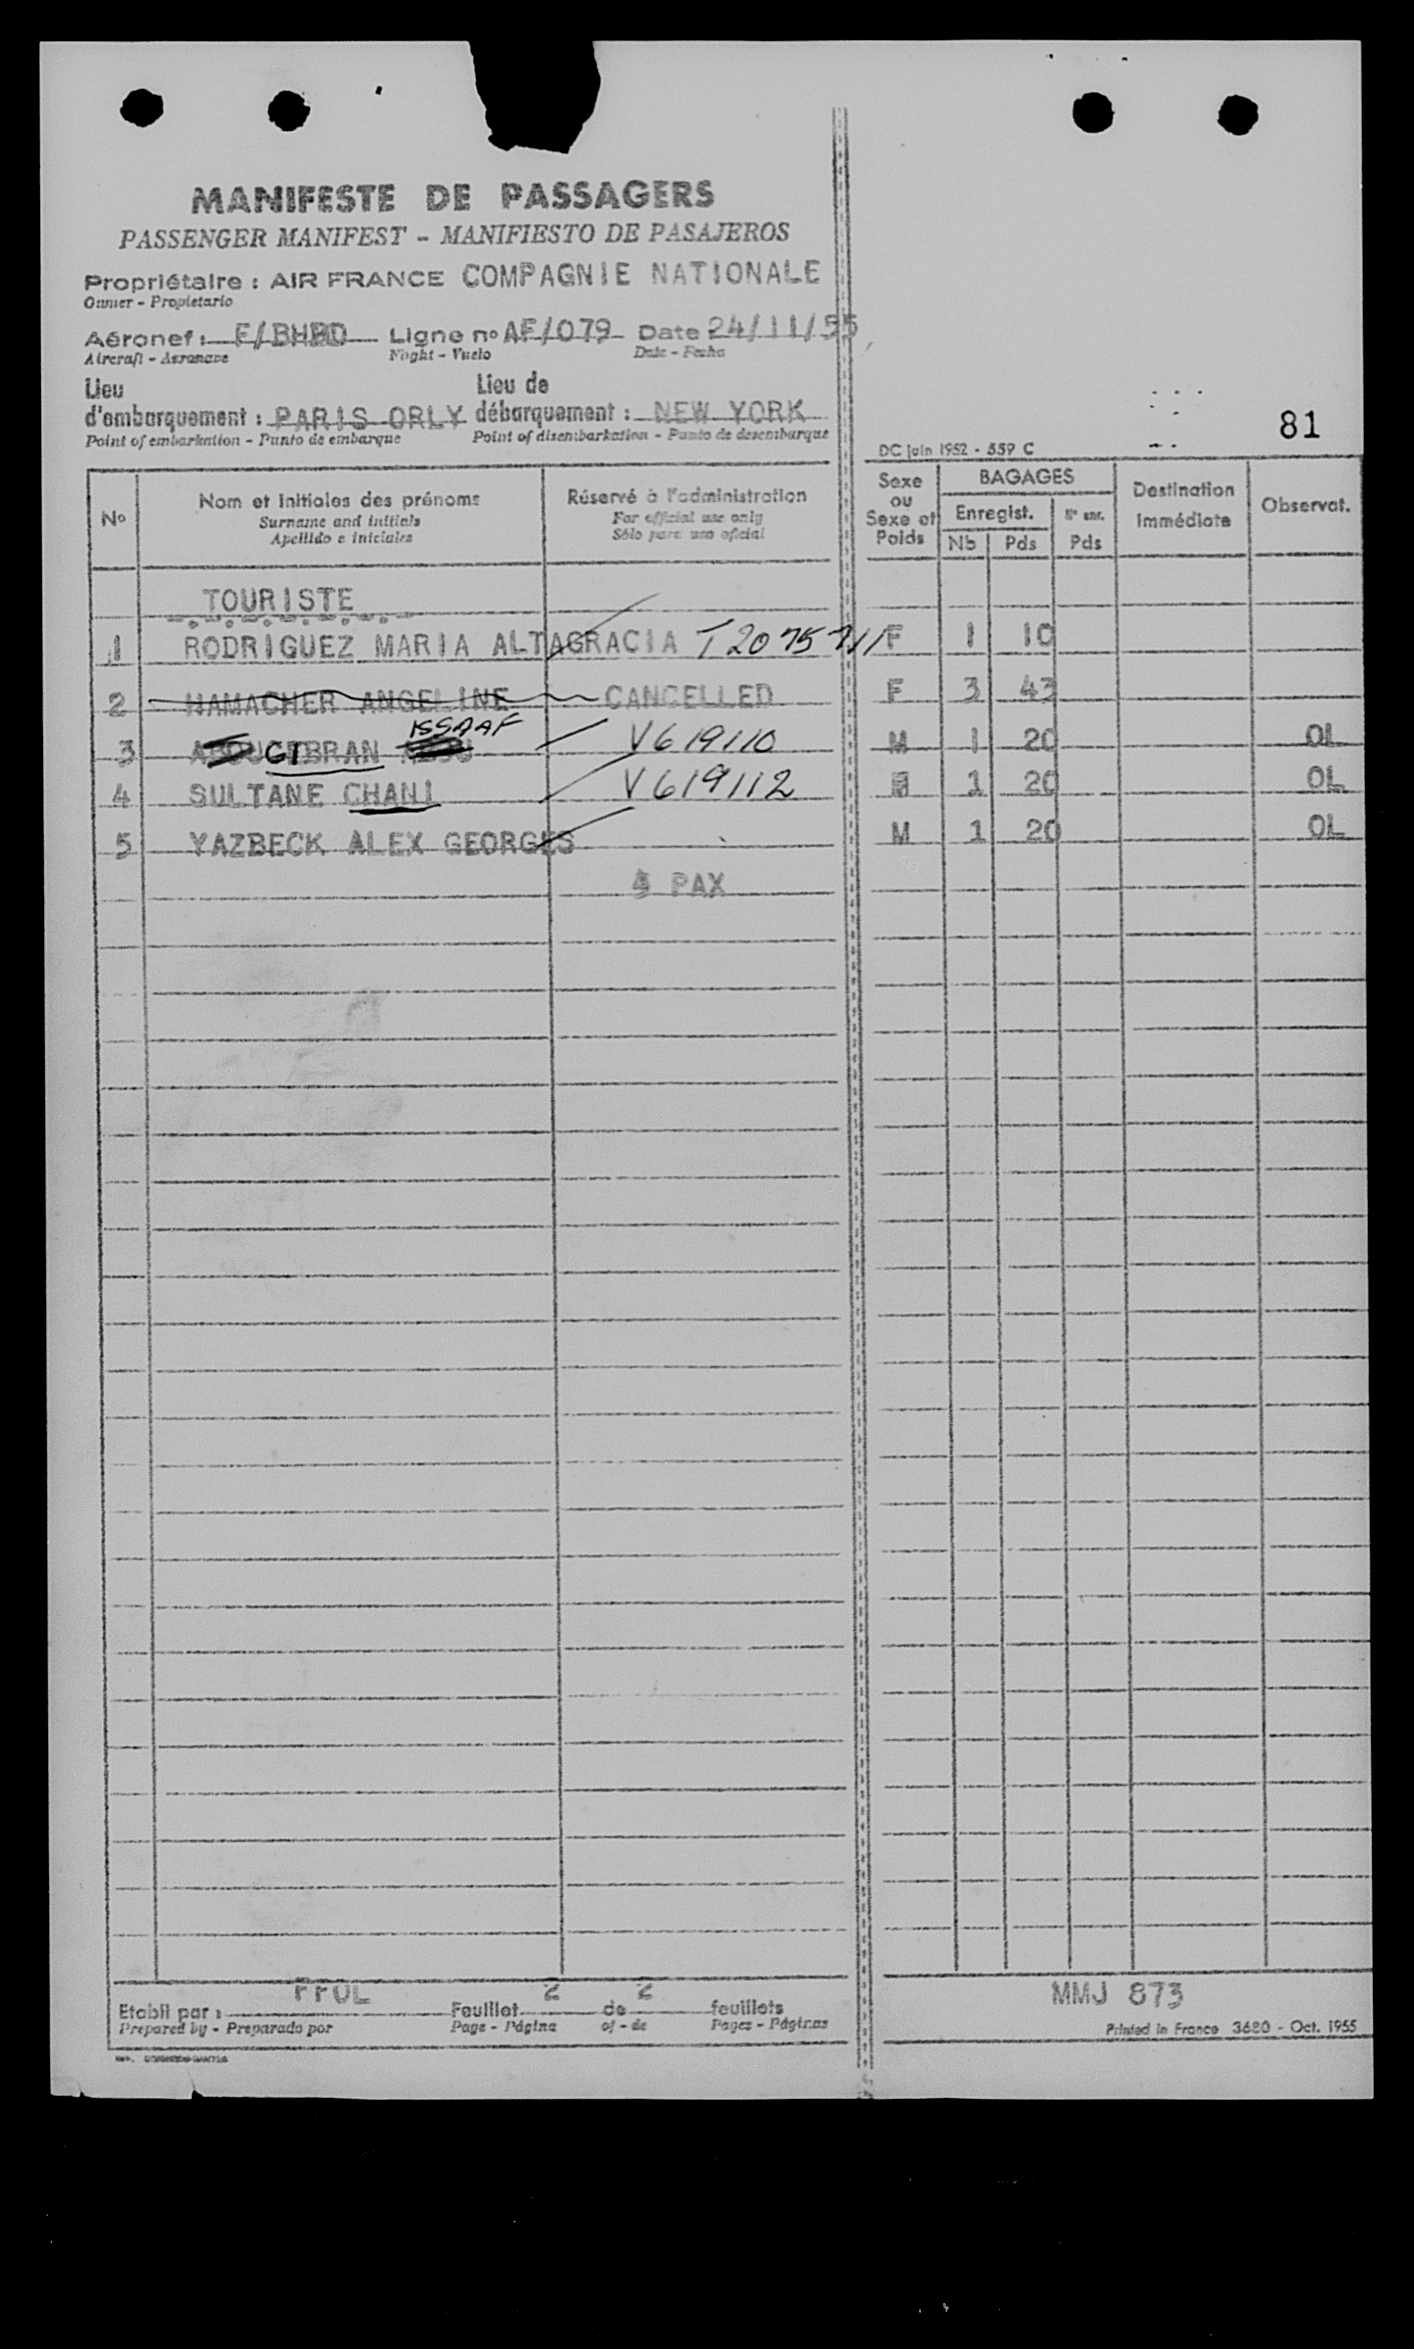 MANIFESTE DE PASSAGERS
PASSENGER MANIFEST - MANIFIESTO DE PASAJEROS
Propriétaire : AIR FRANCE COMPAGNIE NATIONALE
Owner - Propietario
Aéronef : F/BHBD Ligne nº AF/079 Date 24/11/55
Aircraft - Aeronave Flight - Vuelo Date - Fecha
Lieu d'embarquement : PARIS ORLY Lieu de débarquement : NEW YORK
Point of embarkation - Punto de embarque Point of disembarkation - Punto de desembarque
81
DC juin 1952 - 559 C
Nº Nom et initiales des prénoms Réservé à l'administration Sexe ou Sexe et Poids BAGAGES Destination Immédiate Observat.
Surname and initials For official use only Enregist. Nº enr.
Apellido e iniciales Sólo para uso oficial Nb Pds Pds
TOURISTE
1 RODRIGUEZ MARIA ALTAGRACIA T2075711 F 1 10
2 HAMACHER ANGELINE CANCELLED F 3 43
3 GIBRAN ISSAAF V619110 M 1 20 OL
4 SULTANE CHANI V619112 1 20 OL
5 YAZBECK ALEX GEORGES M 1 20 OL
PAX
Etabli par : Feuillet 2 de 2 feuillets
Prepared by - Preparado por Page - Página of - de Pages - Páginas
MMJ 873
Printed in France 3680 - Oct. 1955